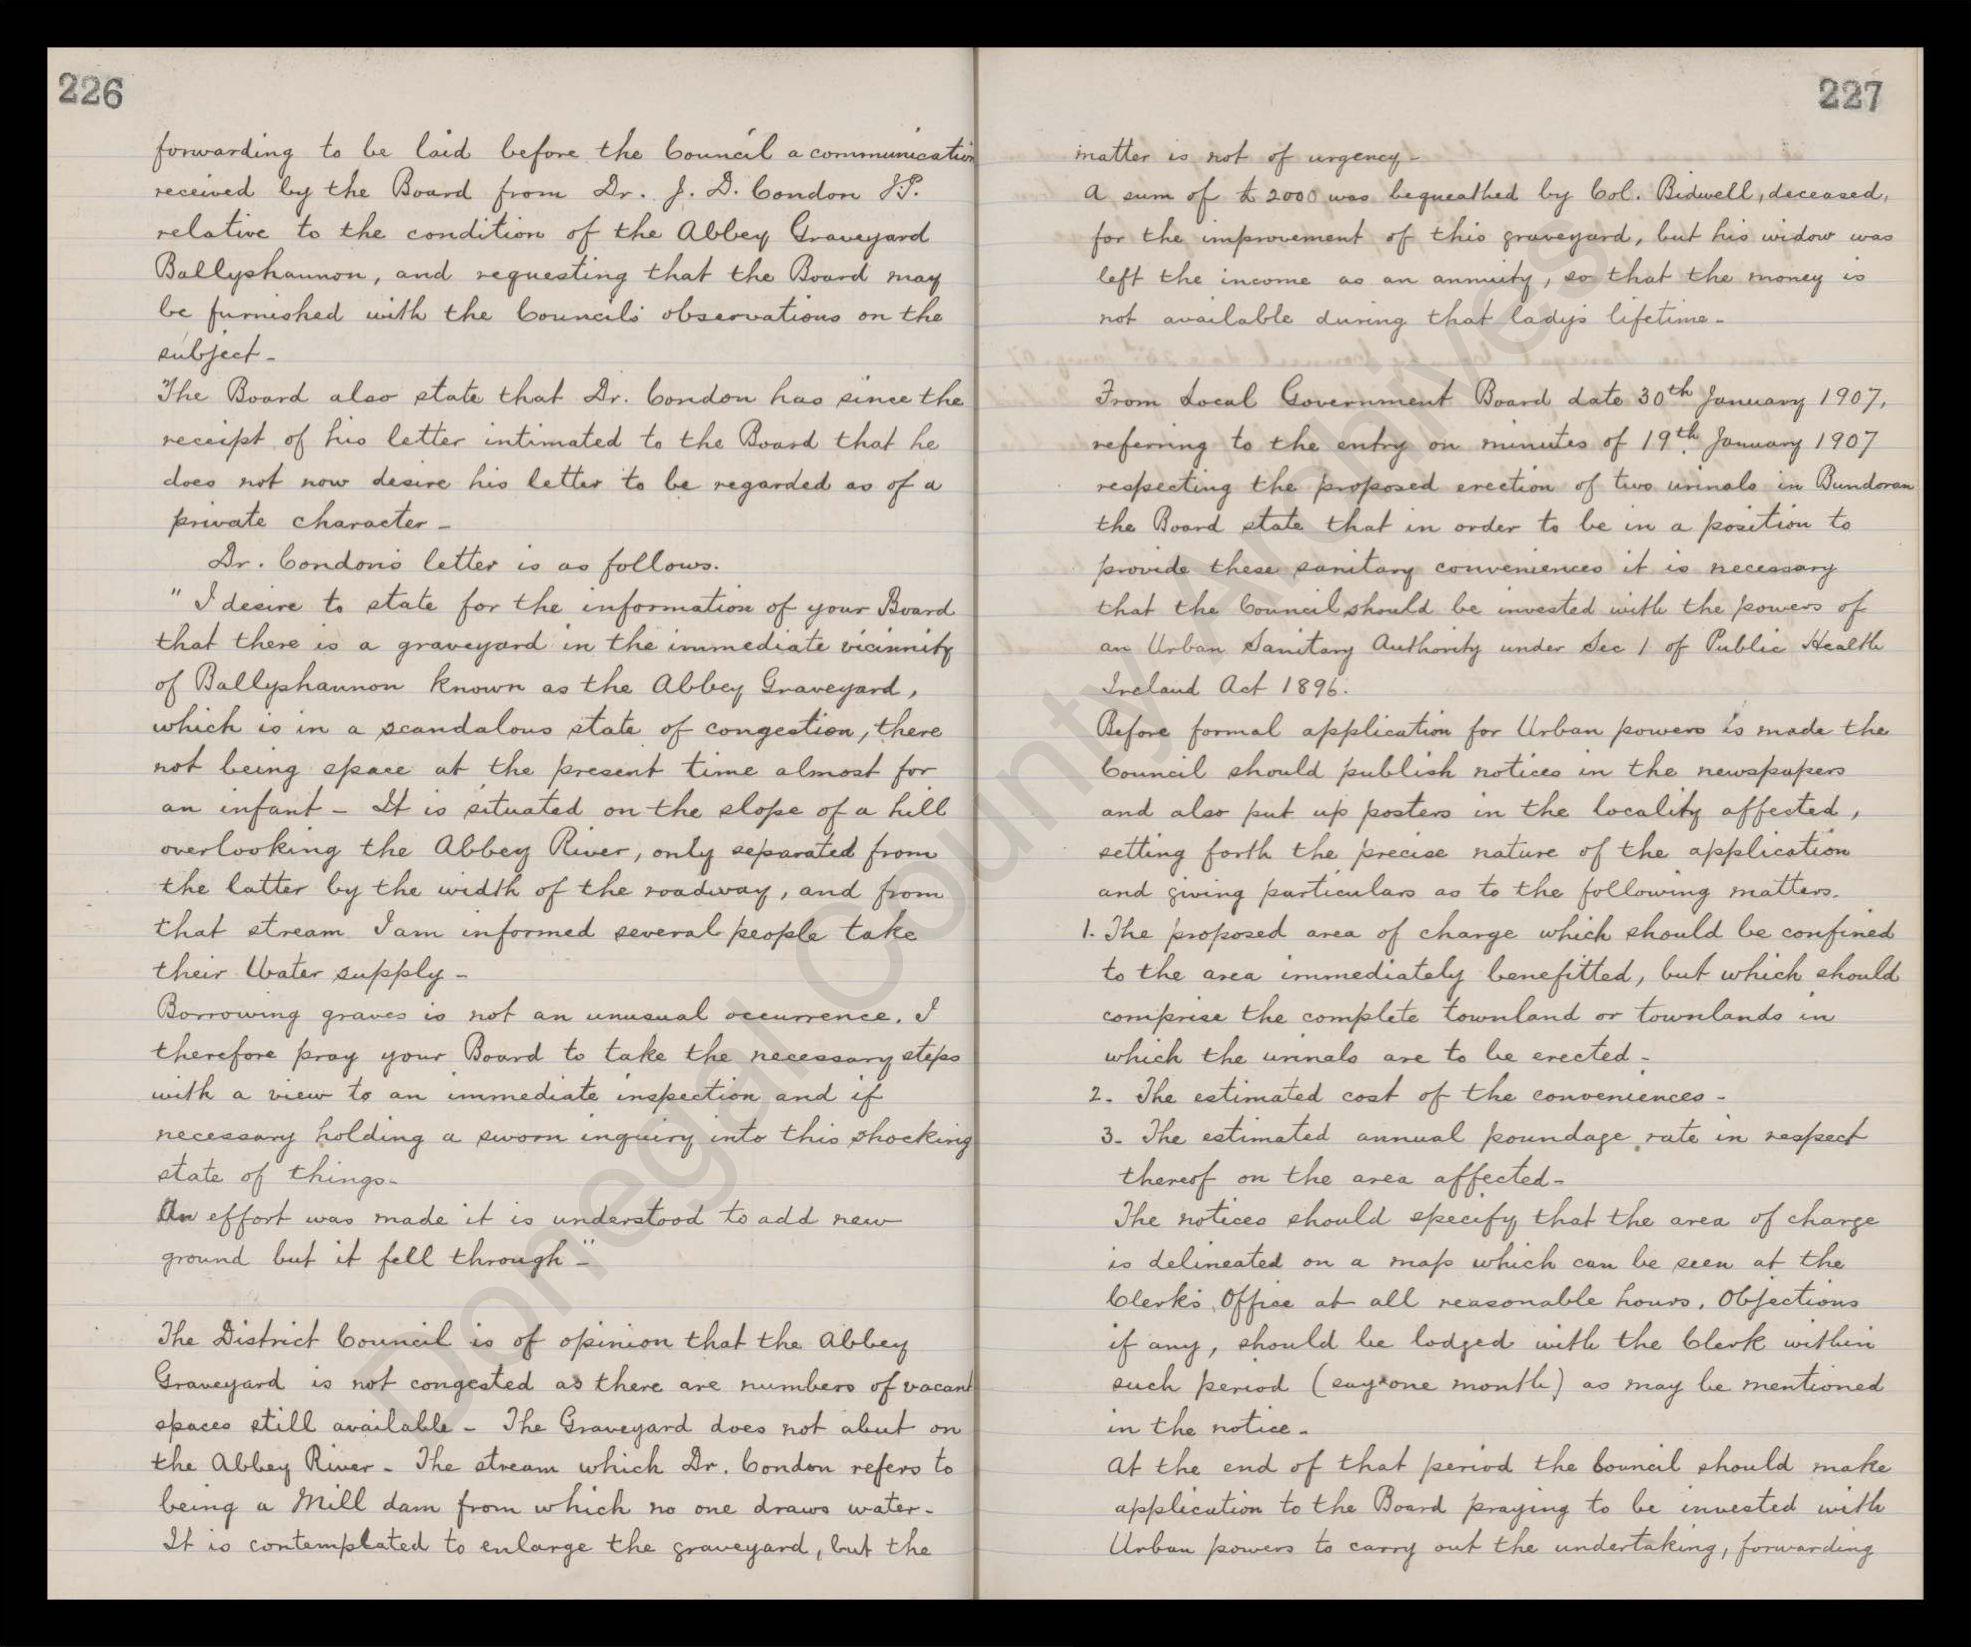 226
forwarding to be laid before the Council a communication
received by the Board from Dr. J. D. Condon J.P.
relative to the condition of the Abbey Graveyard
Ballyshannon, and requesting that the Board may
be furnished with the Council's observations on the
subject -
The Board also state that Dr. Condon has since the
receipt of his letter intimated to the Board that he
does not now desire his letter to be regarded as of a
private character -
Dr. Condon's letter is as follows.
" I desire to state for the information of your Board
that there is a graveyard in the immediate vicinnity
of Ballyshannon known as the Abbey Graveyard,
which is in a scandalous state of congestion, there
not being space at the present time almost for
an infant - It is situated on the slope of a hill
overlooking the Abbey River, only separated from
the latter by the width of the roadway, and from
that stream I am informed several people take
their Water supply -
Borrowing graves is not an unusual occurrence. I
therefore pray your Board to take the necessary steps
with a view to an immediate inspection and if
necessary holding a sworn inquiry into this shocking
state of things -
An effort was made it is understood to add new
ground but it fell through" -
The District Council is of opinion that the Abbey
Graveyard is not congested as there are numbers of vacant
spaces still available - The Graveyard does not abut on
the Abbey River - The stream which Dr. Condon refers to
being a Mill dam from which no one draws water -
It is contemplated to enlarge the graveyard, but the
227
matter is not of urgency -
A sum of £2000 was bequeathed by Col. Bidwell, deceased,
for the improvement of this graveyard, but his widow was
left the income as an annuity, so that the money is
not available during that lady's lifetime -
From Local Government Board date 30th January 1907,
referring to the entry on minutes of 19th January 1907
respecting the proposed erection of two urinals in Bundoran
the Board state that in order to be in a position to
provide these sanitary conveniences it is necessary
that the Council should be invested with the powers of
an Urban Sanitary Authority under Sec 1 of Public Health
Ireland Act 1896.
Before formal application for Urban powers is made the
Council should publish notices in the newspapers
and also put up posters in the locality affected,
setting forth the precise nature of the application
and giving particulars as to the following matters.
1. The proposed area of charge which should be confined
to the area immediately benefitted, but which should
comprise the complete townland or townlands in
which the urinals are to be erected -
2. The estimated cost of the conveniences -
3. The estimated annual poundage rate in respect
thereof on the area affected -
The notices should specify that the area of charge
is delineated on a map which can be seen at the
Clerk's Office at all reasonable hours. Objections
if any, should be lodged with the Clerk within
such period (say one month) as may be mentioned
in the notice -
At the end of that period the Council should make
application to the Board praying to be invested with
Urban powers to carry out the undertaking, forwarding
Donegal County Archives